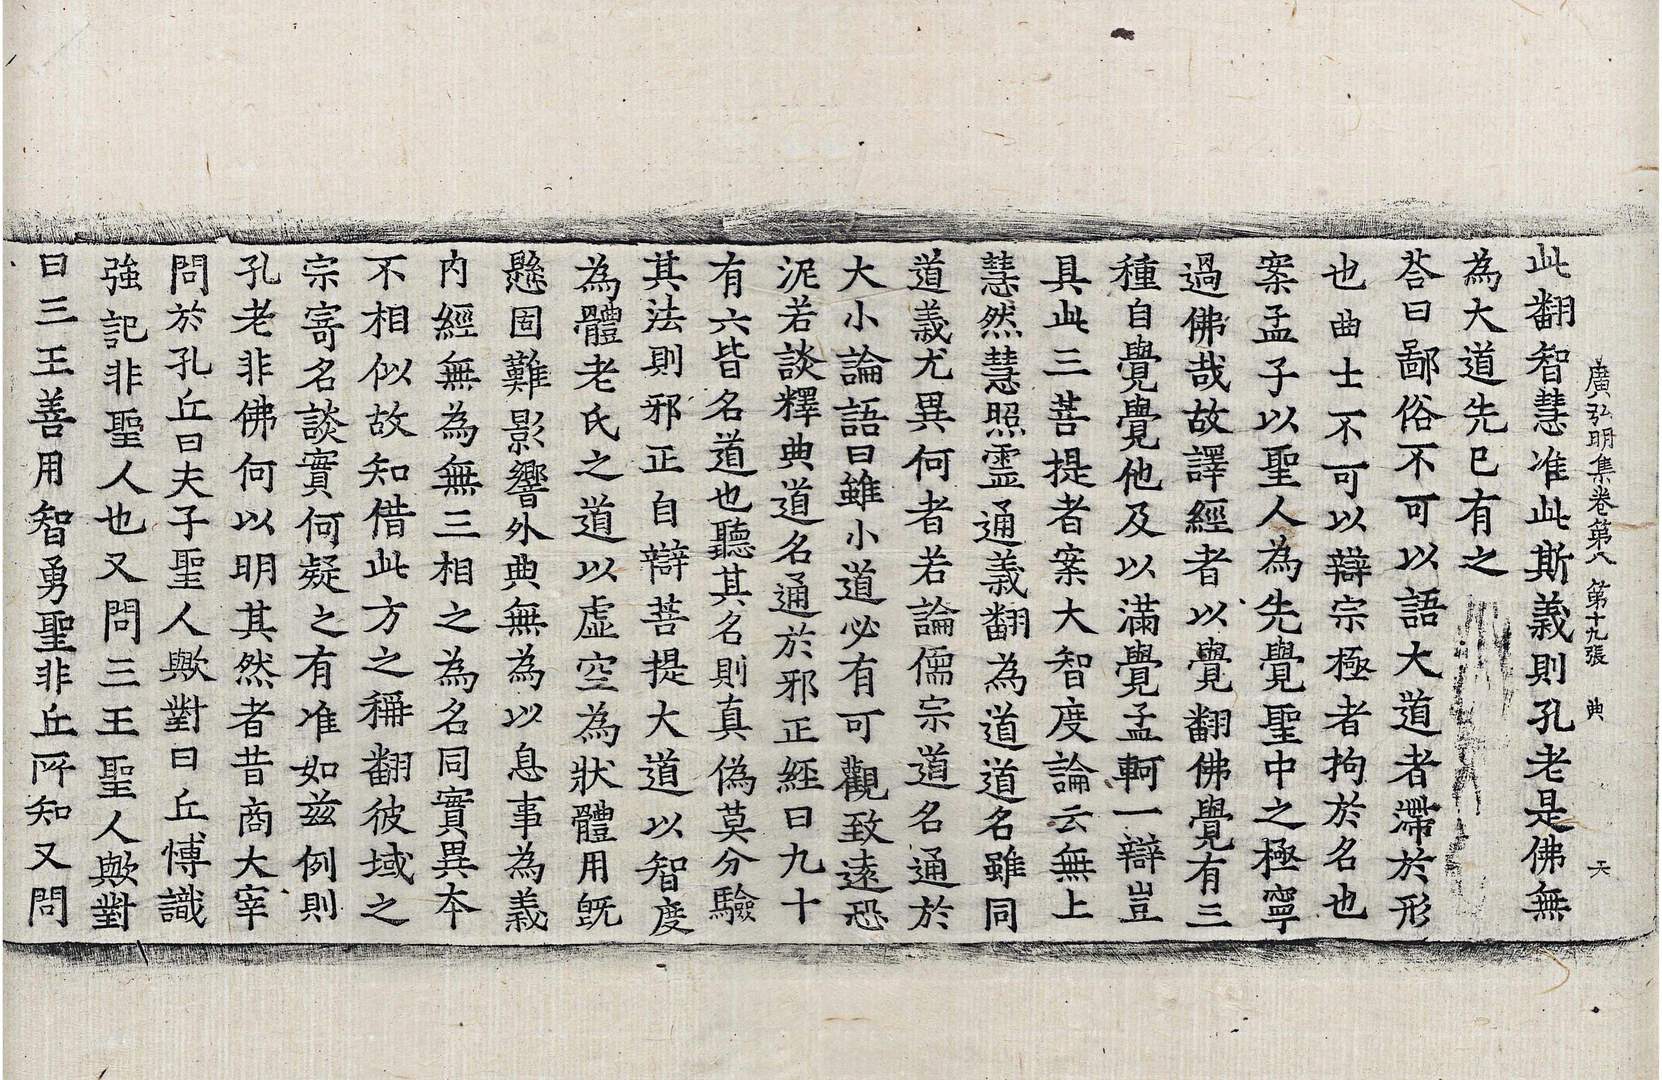 廣弘明集卷第八 第十九張 典
天
此翻智慧准此斯義則孔老是佛無
為大道先已有之
荅曰鄙俗不可以語大道者滯於形
也曲士不可以辯宗極者拘於名也
案孟子以聖人為先覺聖中之極寧
過佛哉故譯經者以覺翻佛覺有三
種自覺覺他及以滿覺孟軻一辯豈
具此三菩提者案大智度論云無上
慧然慧照靈通義翻為道道名雖同
道義尤異何者若論儒宗道名通於
大小論語曰雖小道必有可觀致遠恐
泥若談釋典道名通於邪正經曰九十
有六皆名道也聽其名則真偽莫分驗
其法則邪正自辯菩提大道以智度
為體老氏之道以虛空為狀體用旣
懸固難影響外典無為以息事為義
內經無為無三相之為名同實異本
不相似故知借此方之稱翻彼域之
宗寄名談實何疑之有准如兹例則
孔老非佛何以明其然者昔商大宰
問於孔丘曰夫子聖人歟對曰丘博識
強記非聖人也又問三王聖人歟對
曰三王善用智勇聖非丘所知又問